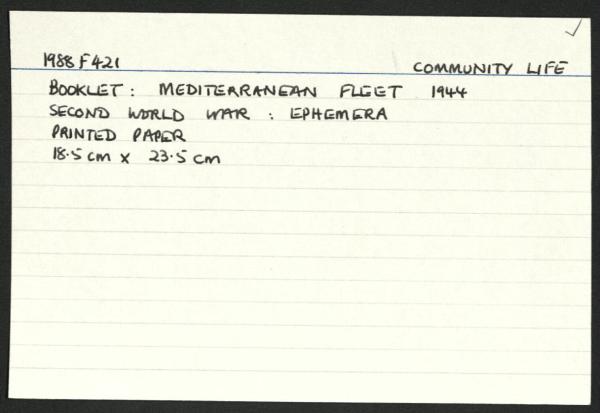 1988 F421 COMMUNITY LIFE
BOOKLET: MEDITERRANEAN FLEET 1944
SECOND WORLD WAR : EPHEMERA
PRINTED PAPER
18.5 cm x 23.5 cm